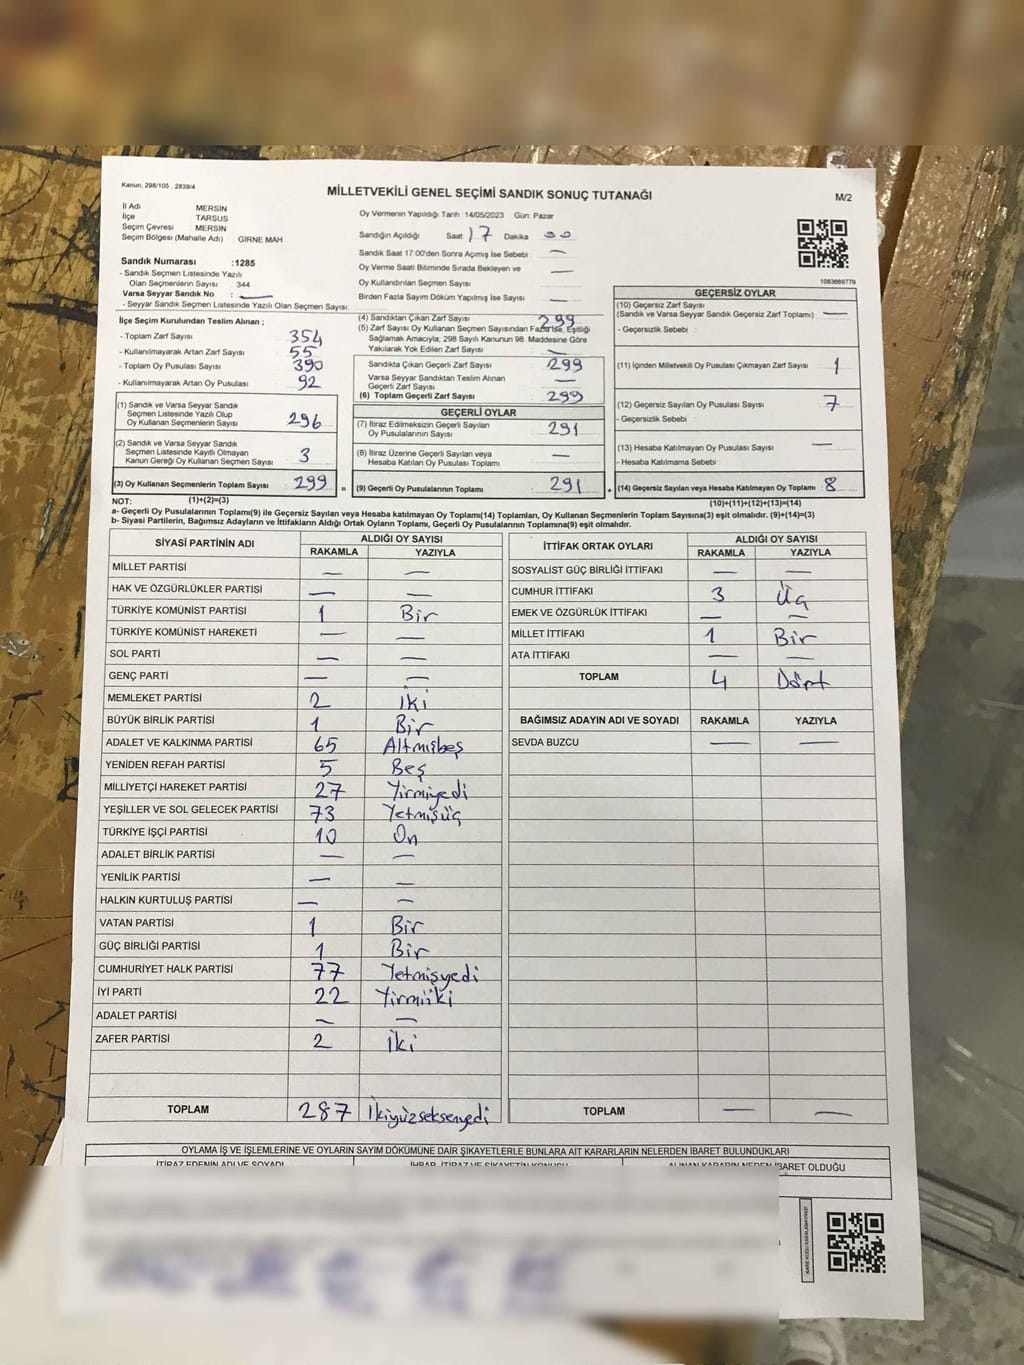 Kanun, 298/105 , 2839/4
MİLLETVEKİLİ GENEL SEÇİMİ SANDIK SONUÇ TUTANAĞI
M/2
İl Adı MERSİN
İlçe TARSUS
Seçim Çevresi MERSİN
Seçim Bölgesi (Mahalle Adı) GİRNE MAH.
Sandık Numarası :1285
- Sandık Seçmen Listesinde Yazılı
Olan Seçmenlerin Sayısı 344
Varsa Seyyar Sandık No : —
- Seyyar Sandık Seçmen Listesinde Yazılı Olan Seçmen Sayısı:
Oy Vermenin Yapıldığı Tarih :14/05/2023 Gün: Pazar
Sandığın Açıldığı Saat 17 Dakika 00
Sandık Saat 17:00'den Sonra Açmış İse Sebebi —
Oy Verme Saati Bitiminde Sırada Bekleyen ve
Oy Kullandırılan Seçmen Sayısı —
Birden Fazla Sayım Döküm Yapılmış İse Sayısı —
1083669779
İlçe Seçim Kurulundan Teslim Alınan ;
- Toplam Zarf Sayısı 354
- Kullanılmayarak Artan Zarf Sayısı 55
- Toplam Oy Pusulası Sayısı 390
- Kullanılmayarak Artan Oy Pusulası 92
(1) Sandık ve Varsa Seyyar Sandık
Seçmen Listesinde Yazılı Olup
Oy Kullanan Seçmenlerin Sayısı 296
(2) Sandık ve Varsa Seyyar Sandık
Seçmen Listesinde Kayıtlı Olmayan
Kanun Gereği Oy Kullanan Seçmen Sayısı 3
(3) Oy Kullanan Seçmenlerin Toplam Sayısı : 299 =
(4) Sandıktan Çıkan Zarf Sayısı 299
(5) Zarf Sayısı Oy Kullanan Seçmen Sayısından Fazla İse, Eşitliği
Sağlamak Amacıyla; 298 Sayılı Kanunun 98. Maddesine Göre
Yakılarak Yok Edilen Zarf Sayısı —
Sandıkta Çıkan Geçerli Zarf Sayısı 299
Varsa Seyyar Sandıktan Teslim Alınan
Geçerli Zarf Sayısı —
(6) Toplam Geçerli Zarf Sayısı 299
GEÇERLİ OYLAR
(7) İtiraz Edilmeksizin Geçerli Sayılan
Oy Pusulalarının Sayısı 291
(8) İtiraz Üzerine Geçerli Sayılan veya
Hesaba Katılan Oy Pusulası Toplamı —
(9) Geçerli Oy Pusulalarının Toplamı 291 +
GEÇERSİZ OYLAR
(10) Geçersiz Zarf Sayısı
(Sandık ve Varsa Seyyar Sandık Geçersiz Zarf Toplamı) —
- Geçersizlik Sebebi :
(11) İçinden Milletvekili Oy Pusulası Çıkmayan Zarf Sayısı 1
(12) Geçersiz Sayılan Oy Pusulası Sayısı 7
- Geçersizlik Sebebi :
(13) Hesaba Katılmayan Oy Pusulası Sayısı —
- Hesaba Katılmama Sebebi :
(14) Geçersiz Sayılan veya Hesaba Katılmayan Oy Toplamı 8
NOT: (1)+(2)=(3) (10)+(11)+(12)+(13)=(14)
a- Geçerli Oy Pusulalarının Toplamı(9) ile Geçersiz Sayılan veya Hesaba katılmayan Oy Toplamı(14) Toplamları, Oy Kullanan Seçmenlerin Toplam Sayısına(3) eşit olmalıdır. (9)+(14)=(3)
b- Siyasi Partilerin, Bağımsız Adayların ve İttifakların Aldığı Ortak Oyların Toplamı, Geçerli Oy Pusulalarının Toplamına(9) eşit olmalıdır.
SİYASİ PARTİNİN ADI ALDIĞI OY SAYISI
RAKAMLA YAZIYLA
MİLLET PARTİSİ — —
HAK VE ÖZGÜRLÜKLER PARTİSİ — —
TÜRKİYE KOMÜNİST PARTİSİ 1 Bir
TÜRKİYE KOMÜNİST HAREKETİ — —
SOL PARTİ — —
GENÇ PARTİ — —
MEMLEKET PARTİSİ 2 İki
BÜYÜK BİRLİK PARTİSİ 1 Bir
ADALET VE KALKINMA PARTİSİ 65 Altmışbeş
YENİDEN REFAH PARTİSİ 5 Beş
MİLLİYETÇİ HAREKET PARTİSİ 27 Yirmiyedi
YEŞİLLER VE SOL GELECEK PARTİSİ 73 Yetmişüç
TÜRKİYE İŞÇİ PARTİSİ 10 On
ADALET BİRLİK PARTİSİ — —
YENİLİK PARTİSİ — —
HALKIN KURTULUŞ PARTİSİ — —
VATAN PARTİSİ 1 Bir
GÜÇ BİRLİĞİ PARTİSİ 1 Bir
CUMHURİYET HALK PARTİSİ 77 Yetmişyedi
İYİ PARTİ 22 Yirmiiki
ADALET PARTİSİ — —
ZAFER PARTİSİ 2 İki
TOPLAM 287 İkiyüzseksenyedi
İTTİFAK ORTAK OYLARI ALDIĞI OY SAYISI
RAKAMLA YAZIYLA
SOSYALİST GÜÇ BİRLİĞİ İTTİFAKI — —
CUMHUR İTTİFAKI 3 Üç
EMEK VE ÖZGÜRLÜK İTTİFAKI — —
MİLLET İTTİFAKI 1 Bir
ATA İTTİFAKI — —
TOPLAM 4 Dört
BAĞIMSIZ ADAYIN ADI VE SOYADI RAKAMLA YAZIYLA
SEVDA BUZCU — —
TOPLAM — —
OYLAMA İŞ VE İŞLEMLERİNE VE OYLARIN SAYIM DÖKÜMÜNE DAİR ŞİKAYETLERLE BUNLARA AİT KARARLARIN NELERDEN İBARET BULUNDUKLARI
İTİRAZ EDENİN ADI VE SOYADI İHBAR, İTİRAZ VE ŞİKAYETİN KONUSU ALINAN KARARIN NEDEN İBARET OLDUĞU